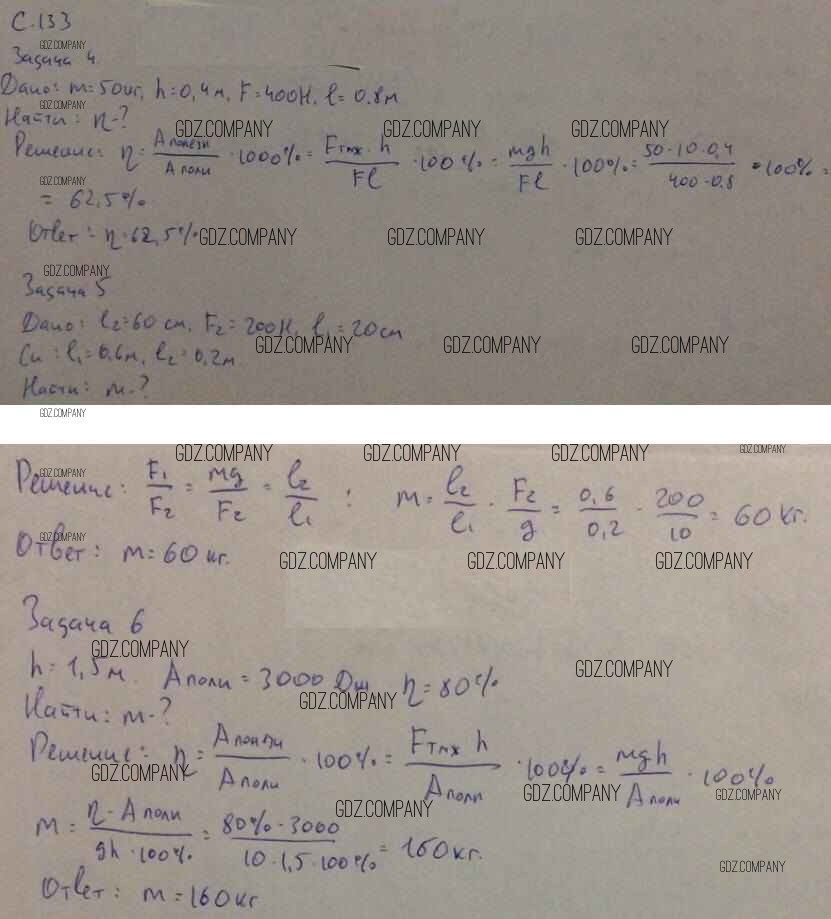 С. 133
GDZ.COMPANY
Задача 4.
Дано: m=50кг, h=0,4м, F=400Н, l=0.8м
GDZ.COMPANY
Найти: η-?
GDZ.COMPANY GDZ.COMPANY GDZ.COMPANY
Решение: η = Aполезн / Aполн · 1000% = Fтяж · h / Fl · 100% = mgh / Fl · 100% = 50·10·0,4 / 400·0.8 · 100% =
GDZ.COMPANY
= 62,5%
Ответ: η=62,5%
GDZ.COMPANY GDZ.COMPANY GDZ.COMPANY
GDZ.COMPANY
Задача 5
Дано: l₂=60 см, F₂=200Н, l₁=20см
GDZ.COMPANY GDZ.COMPANY GDZ.COMPANY
Си: l₁=0.6м, l₂=0,2м
Найти: m-?
GDZ.COMPANY
GDZ.COMPANY GDZ.COMPANY GDZ.COMPANY GDZ.COMPANY
GDZ.COMPANY
Решение: F₁ / F₂ = mg / F₂ = l₂ / l₁ : m = l₂ / l₁ · F₂ / g = 0,6 / 0,2 · 200 / 10 = 60 кг.
GDZ.COMPANY
Ответ: m=60 кг.
GDZ.COMPANY GDZ.COMPANY GDZ.COMPANY
Задача 6
GDZ.COMPANY GDZ.COMPANY
h=1,5м. Aполн = 3000 Дж η=80%
GDZ.COMPANY
Найти: m-?
Решение: η = Aполезн / Aполн · 100% = Fтяж h / Aполн · 100% = mgh / Aполн · 100%
GDZ.COMPANY GDZ.COMPANY GDZ.COMPANY
GDZ.COMPANY
m = η · Aполн / gh · 100% = 80% · 3000 / 10·1,5·100% = 160кг.
GDZ.COMPANY
Ответ: m=160кг